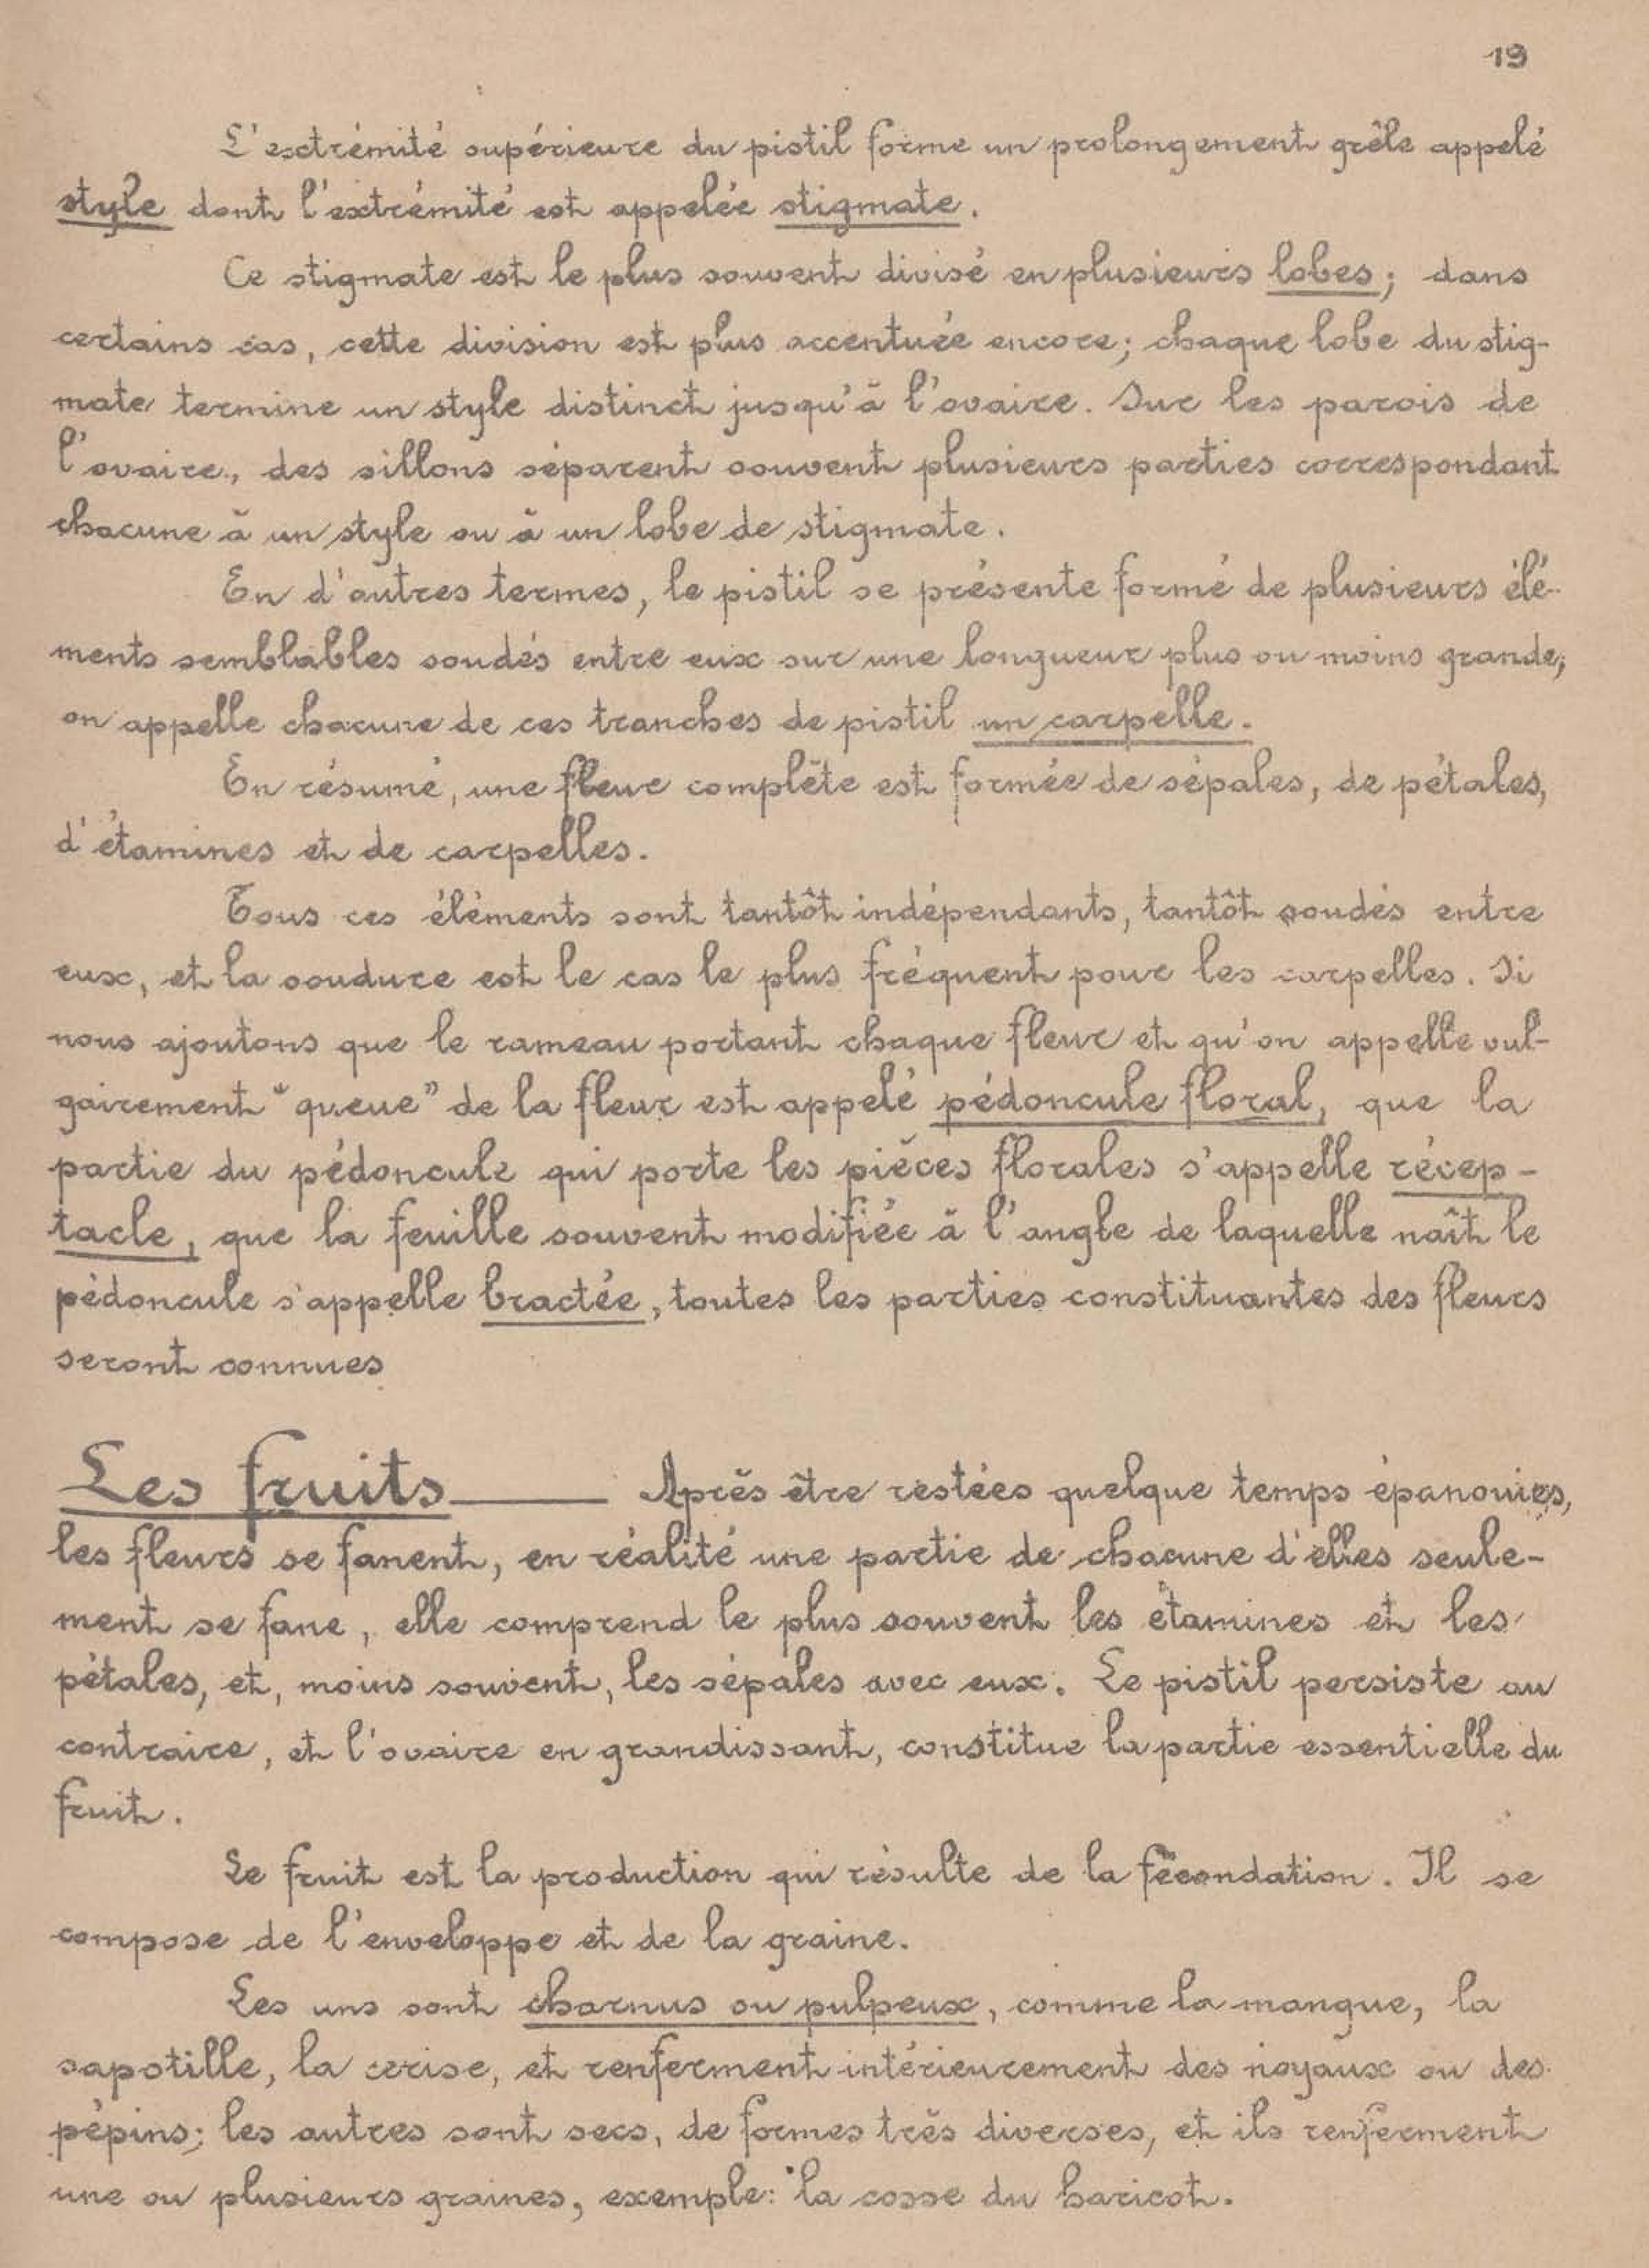 19
L'extrémité supérieure du pistil forme un prolongement grêle appelé
style dont l'extrémité est appelée stigmate.
Ce stigmate est le plus souvent divisé en plusieurs lobes ; dans
certains cas, cette division est plus accentuée encore ; chaque lobe du stig-
mate termine un style distinct jusqu'à l'ovaire. Sur les parois de
l'ovaire, des sillons séparent souvent plusieurs parties correspondant
chacune à un style ou à un lobe de stigmate.
En d'autres termes, le pistil se présente formé de plusieurs élé-
ments semblables soudés entre eux sur une longueur plus ou moins grande ;
on appelle chacune de ces tranches de pistil un carpelle.
En résumé, une fleur complète est formée de sépales, de pétales,
d'étamines et de carpelles.
Tous ces éléments sont tantôt indépendants, tantôt soudés entre
eux, et la soudure est le cas le plus fréquent pour les carpelles. Si
nous ajoutons que le rameau portant chaque fleur et qu'on appelle vul-
gairement "queue" de la fleur est appelé pédoncule floral, que la
partie du pédoncule qui porte les pièces florales s'appelle récep-
tacle, que la feuille souvent modifiée à l'angle de laquelle naît le
pédoncule s'appelle bractée, toutes les parties constituantes des fleurs
seront connues
Les fruits — Après être restées quelque temps épanouies,
les fleurs se fanent, en réalité une partie de chacune d'elles seule-
ment se fane, elle comprend le plus souvent les étamines et les
pétales, et, moins souvent, les sépales avec eux. Le pistil persiste au
contraire, et l'ovaire en grandissant, constitue la partie essentielle du
fruit.
Le fruit est la production qui résulte de la fécondation. Il se
compose de l'enveloppe et de la graine.
Les uns sont charnus ou pulpeux, comme la mangue, la
sapotille, la cerise, et renferment intérieurement des noyaux ou des
pépins ; les autres sont secs, de formes très diverses, et ils renferment
une ou plusieurs graines, exemple : la cosse du haricot.